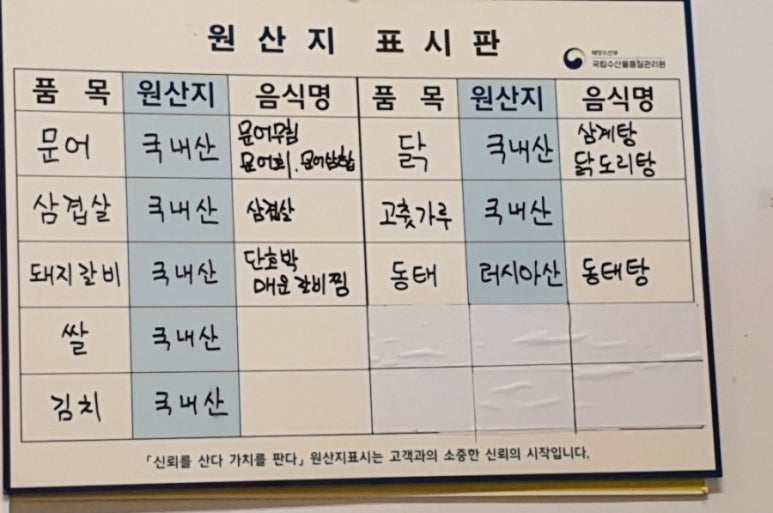 원산지 표시판
해양수산부
국립수산물품질관리원
품 목 원산지 음식명 품 목 원산지 음식명
문어 국내산 문어무침 문어회, 문어삼합 닭 국내산 삼계탕 닭도리탕
삼겹살 국내산 삼겹살 고춧가루 국내산
돼지갈비 국내산 단호박 매운갈비찜 동태 러시아산 동태탕
쌀 국내산
김치 국내산
「신뢰를 산다 가치를 판다」 원산지표시는 고객과의 소중한 신뢰의 시작입니다.